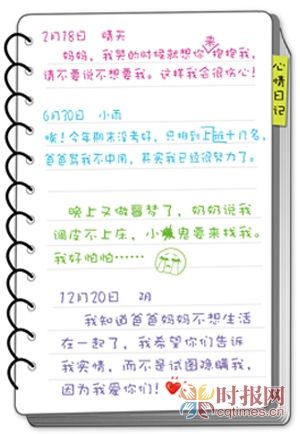 2月18日 晴天
妈妈，我哭的时候就想你来抱抱我，
请不要说不想要我。这样我会很伤心！
心情日记
6月30日 小雨
唉！今年期末没考好，只排到上班十几名，
爸爸骂我不中用，其实我已经很努力了。
晚上又做噩梦了，妈妈说我
调皮不上床，小鬼要来找我。
我好怕怕……
12月20日 阴
我知道爸爸妈妈不想生活
在一起了，我希望你们告诉
我实情，而不是试图隐瞒我，
因为我爱你们！
时报网
cqtimes.cn